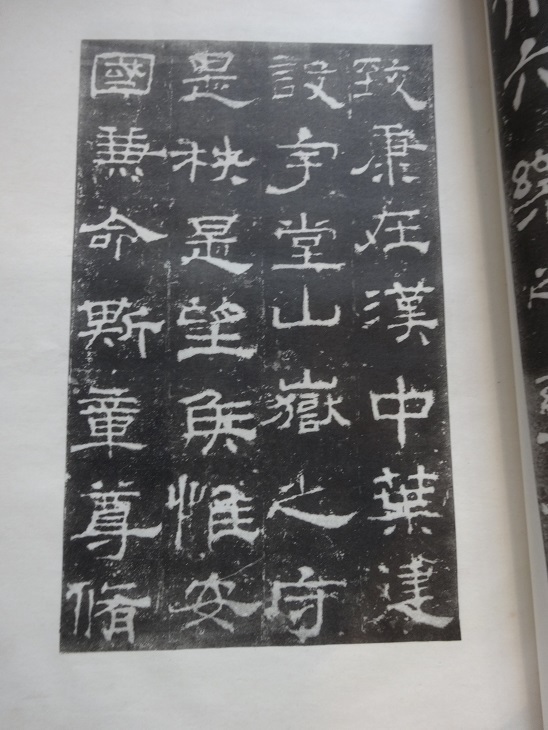 致康在漢中葉建
設宇堂山嶽之守
是秩是望侯惟安
國兼命斯章尊脩
六樂之